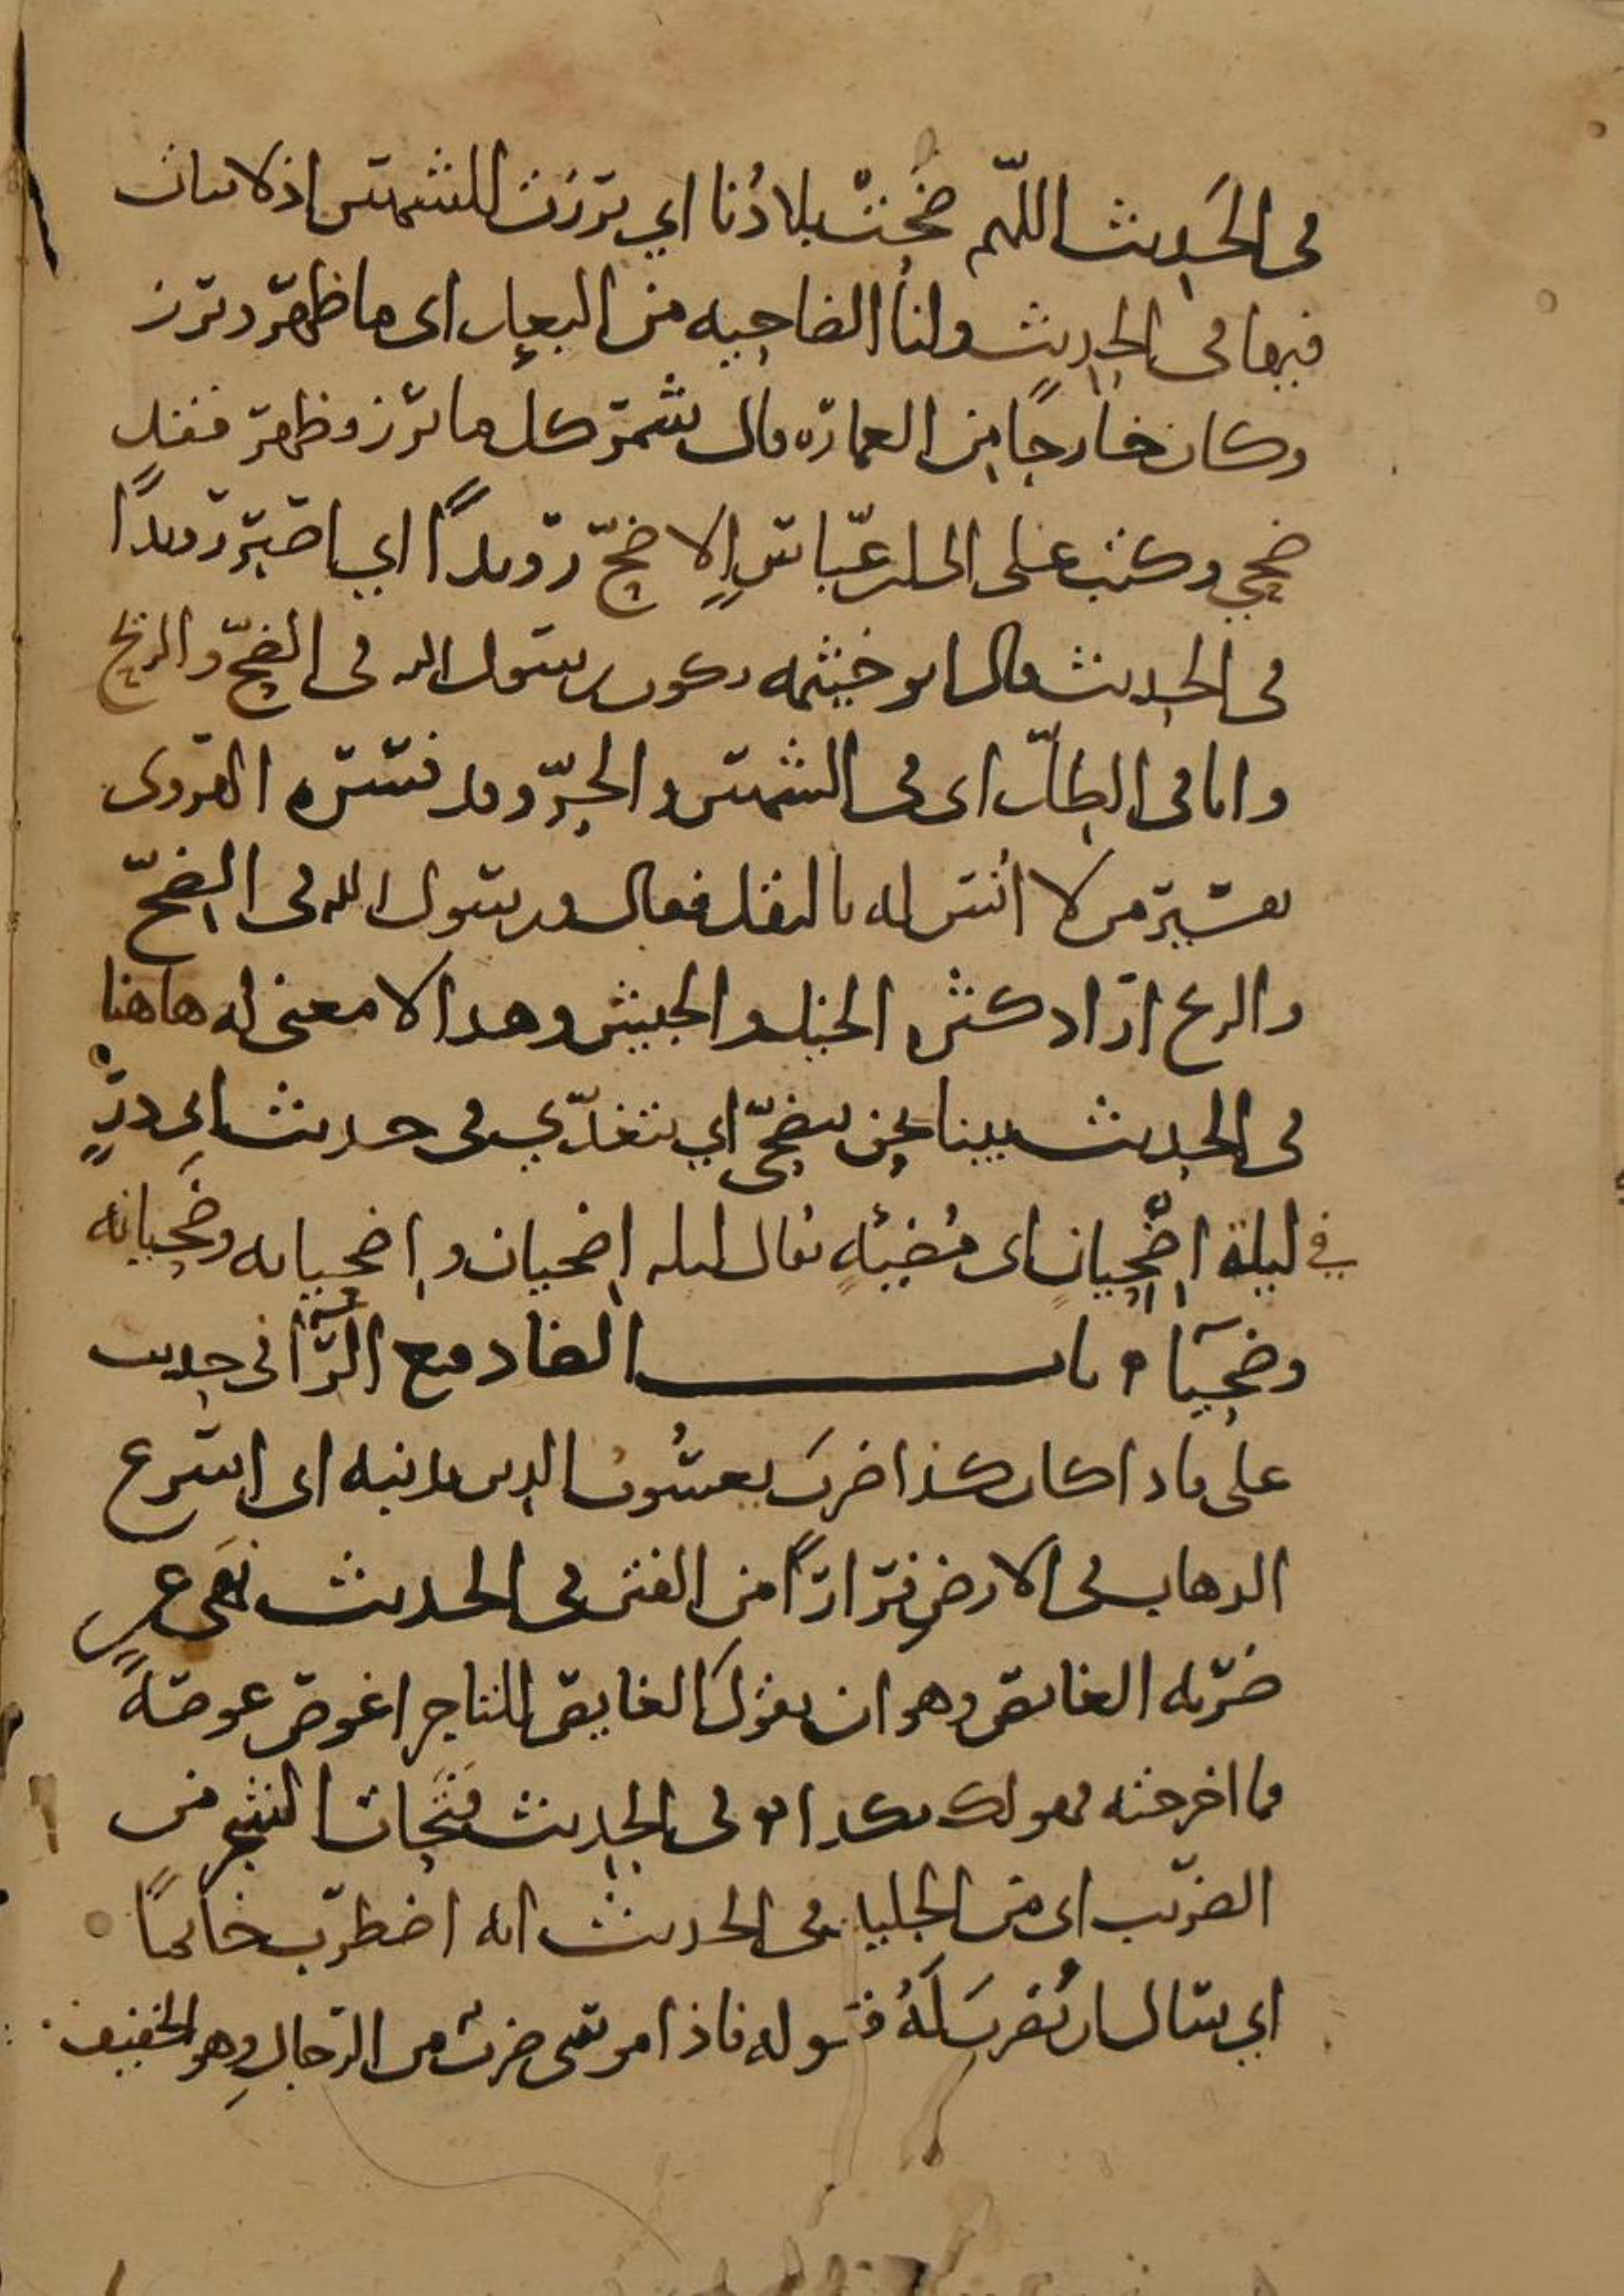 في الحديث اللهم ضَحَتْ بلادُنا اي برزت للشمس اذ لا نبات
فيها في الحديث ولنا الضاحيه من البعل اى ما ظهر وبرز
وكان خارجًا من العماره قال شمر كل ما برز وظهر فقد
ضحي وكتب على الى ابن عبّاس الا ضحّ رويدًا اي اصبر رويدًا
في الحديث قال ابو خيثمه يكون رسول الله في الضحّ والريح
وانا في الظلّ اى في الشمس والحرّ وقد فسّره الهروى
تفسير من لا انس له بالنقل فقال ورسول الله في الضحّ
والريح اراد كثره الخيل والجيش وهذا لا معنى له هاهنا
في الحديث بينا نحن نتضحّى اي نتغدّي في حديث ابى ذرٍّ
في ليلة اِضْحِيان اى مُضيئهٍ يقال ليله اِضحيان واِضحيانه وضَحيانه
وضحيَآء باب الضاد مع الرَّا في حديث
على فاذا كان كذا ضربَ يعسُوبُ الدين بذنبه اى اسرع
الذهاب في الارض فرارًا من الفتن في الحديث نَهَى عن
ضربه الغايص وهو ان يقولَ الغايص للتاجر اغوص غوصةً
فما اخرجته فهو لك بكذا في الحديث تَتَحات الشجر من
الضريب اى من الجليد في الحديث انه اضطرب خاتمًا
اي سال ان يُضربَ لَهُ قوله فاذا موسى ضربٌ من الرجالِ وهو الخفيف